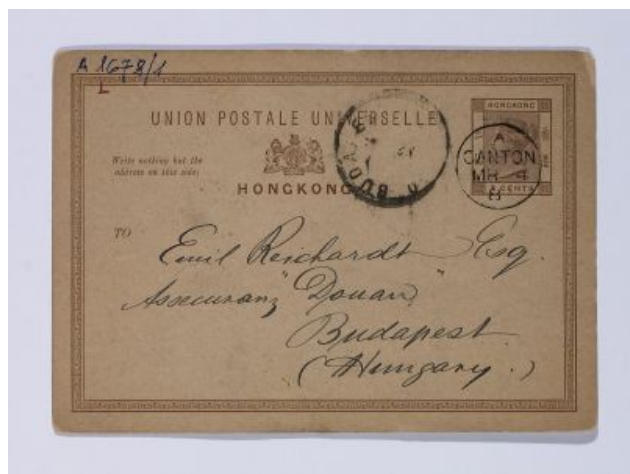 A 1678/1
L
UNION POSTALE UNIVERSELLE
HONGKONG
Write nothing but the
address on this side;
HONGKONG
CENTS
BUDAP
A
CANTON
MR 4
8
TO
Emil Reichardt Esq.
Assecuranz "Donau"
Budapest
(Hungary.)